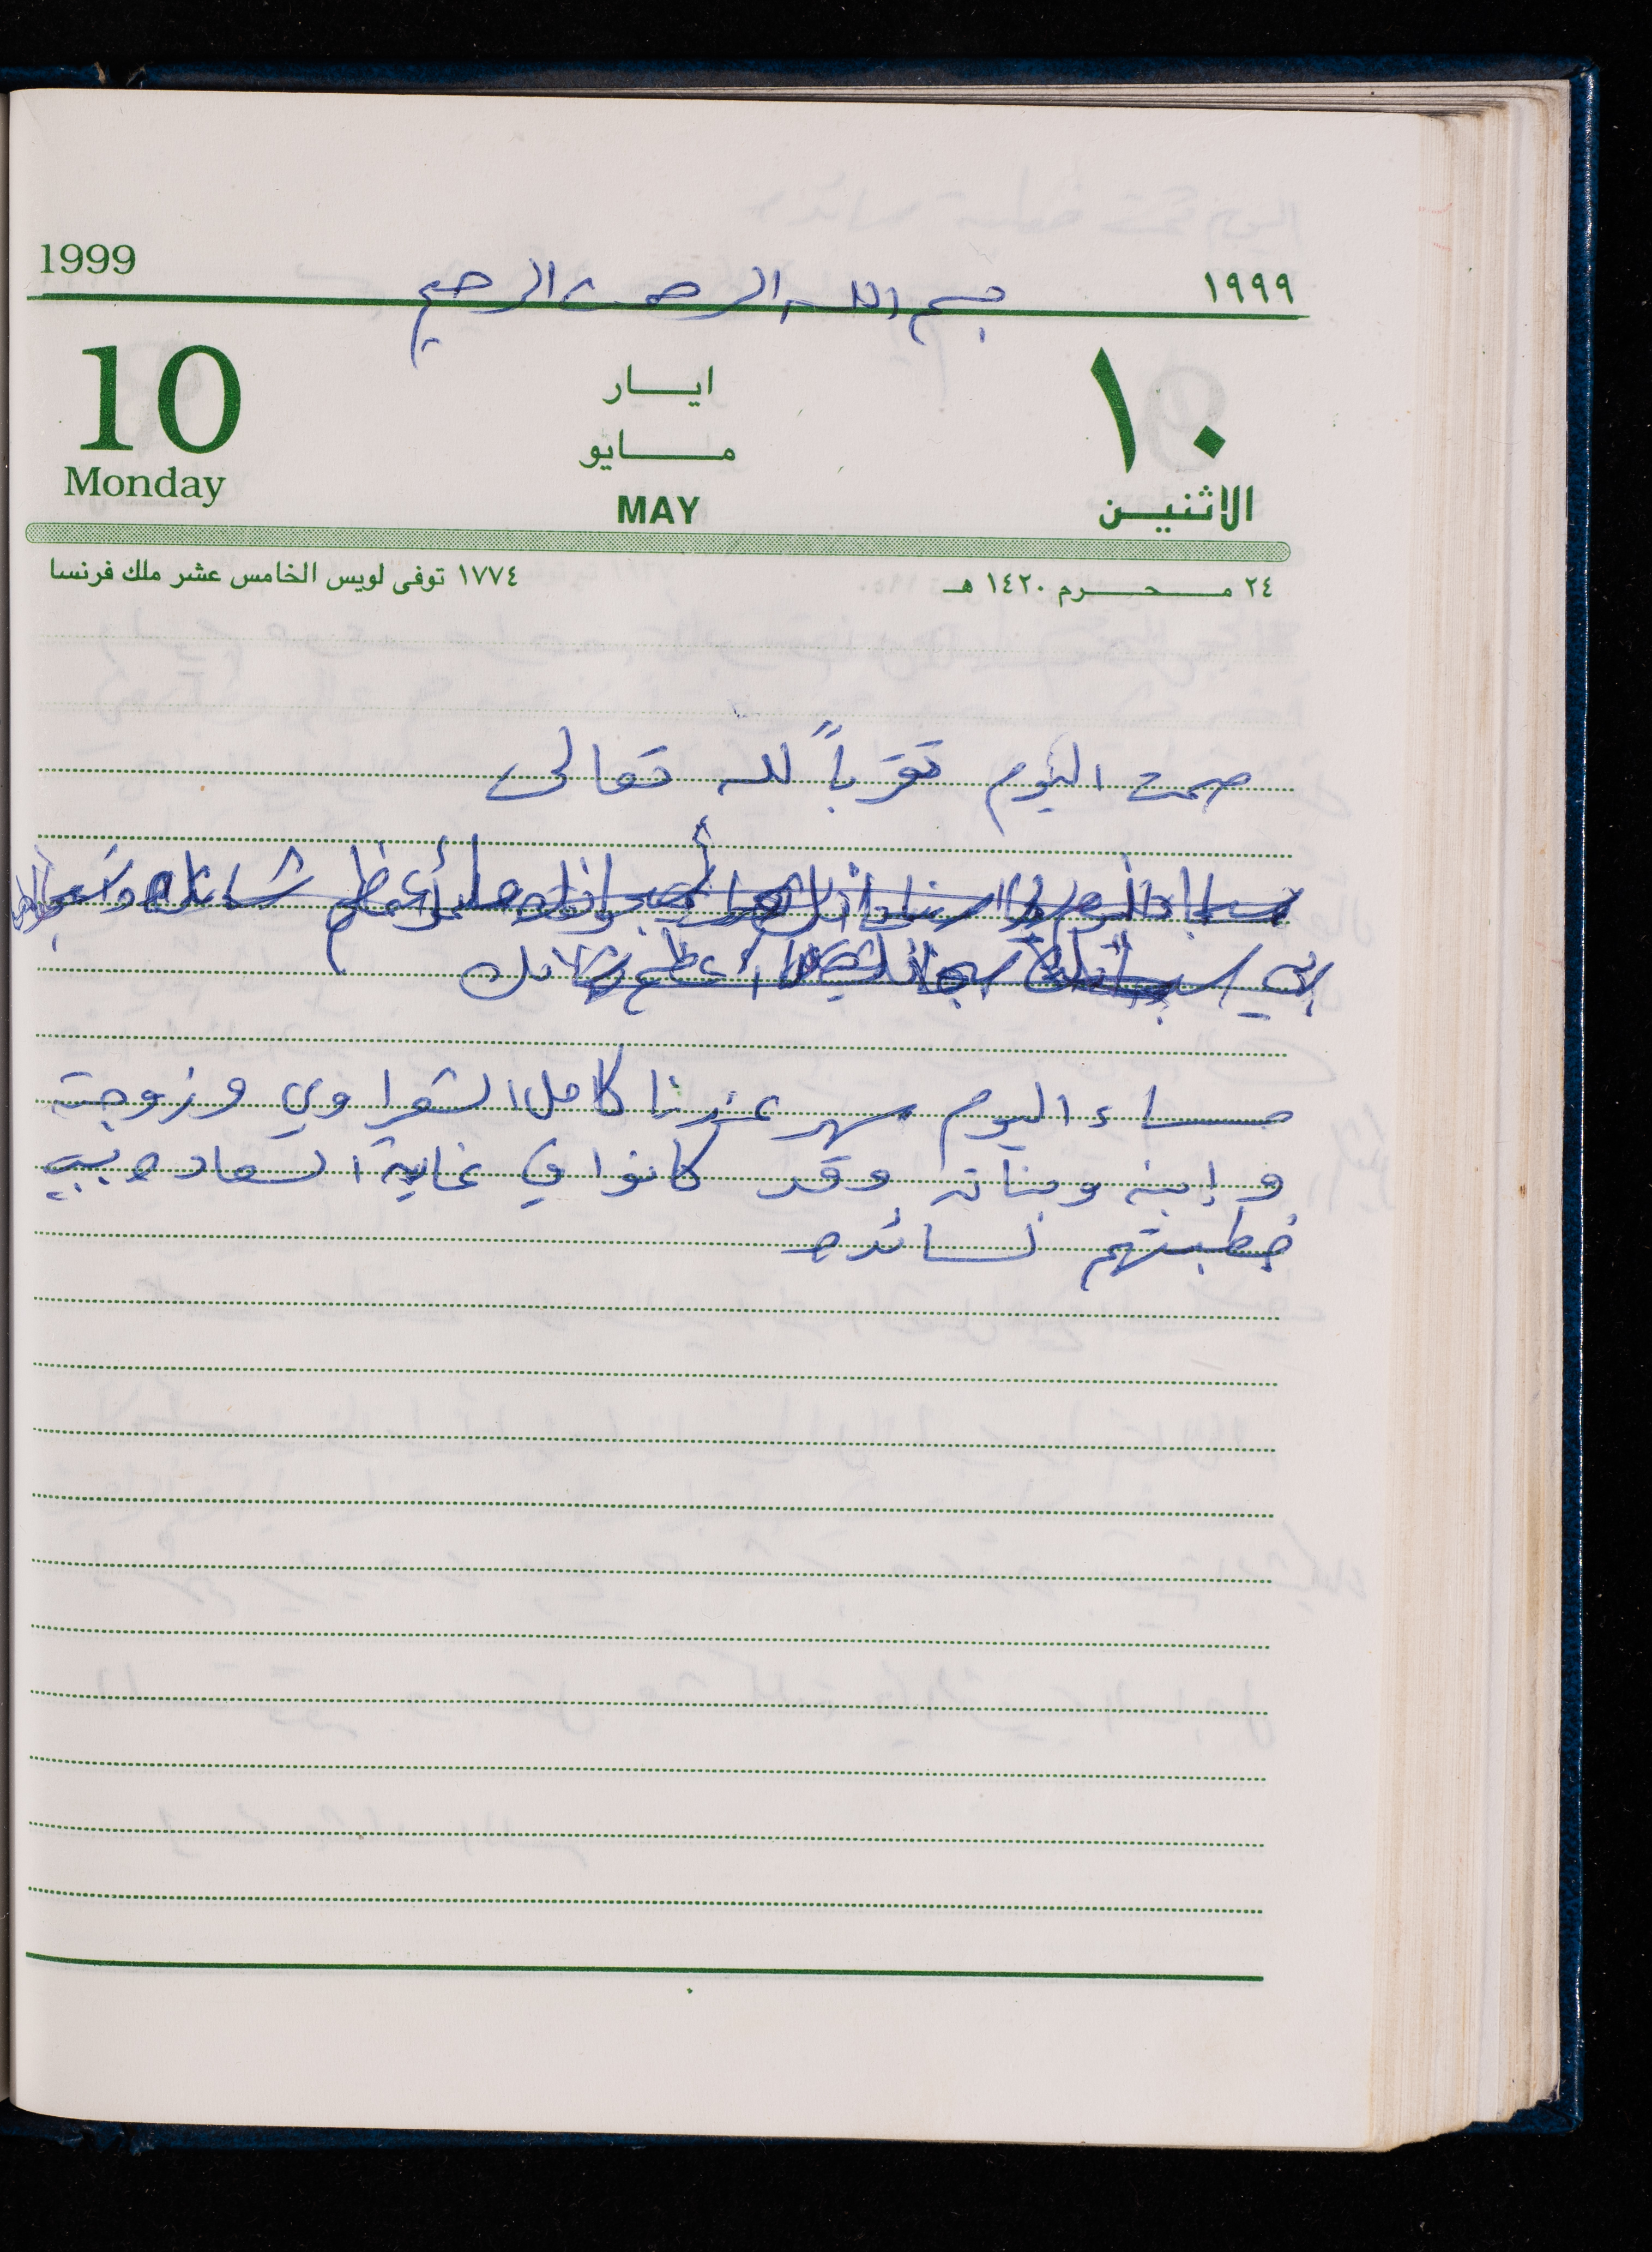 1999 ١٩٩٩
بسم الله الرحمن الرحيم
10 ايار ١٠
مايو
Monday MAY الاثنين
٢٤ محرم ١٤٢٠ هـ ١٧٧٤ توفى لويس الخامس عشر ملك فرنسا
صمت اليوم تقرباً لله تعالى
أعظم شانك
أعظم شانك
مساء اليوم سهر عندنا كامل الشعراوي وزوجته
و إبنه وبناته وقد كانوا في غاية السعاده بسبب
خطبتهم لسائده